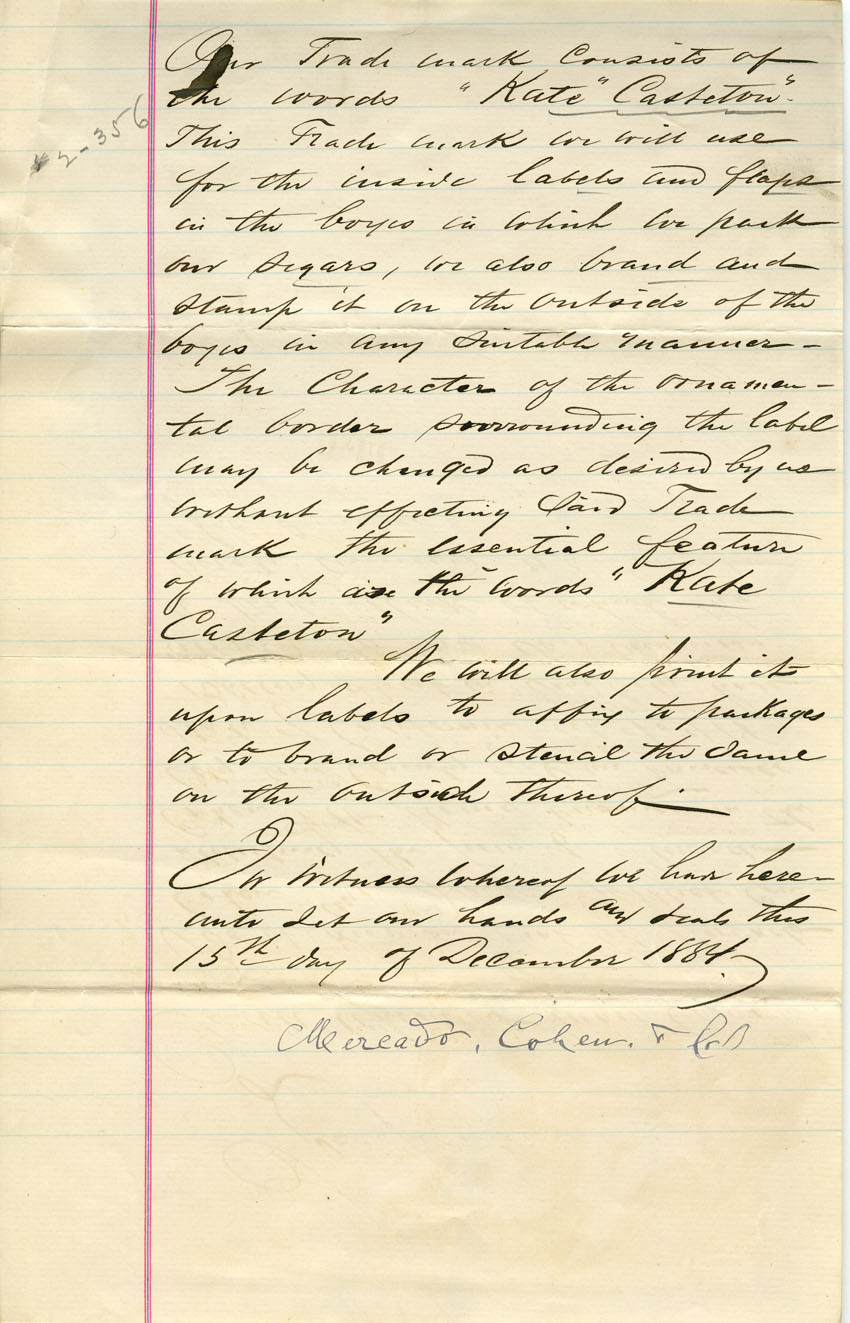 2-356
Our Trade mark consists of
the words "Kate" Castleton".
This Trade mark we will use
for the inside labels and flaps
in the boxes in which we pack
our segars, we also brand and
stamp it on the outside of the
boxes in any suitable manner -
The Character of the ornamen-
tal border sorrounding the label
may be changed as desired by us
without effecting said Trade
mark the essential feature
of which are the words "Kate
Castleton"
We will also print it
upon labels to affix to packages
or to brand or stencil the same
on the outside thereof.
In witness whereof we have here-
unto set our hands and seals this
15th day of December 1884
Mercado, Cohen. & Co